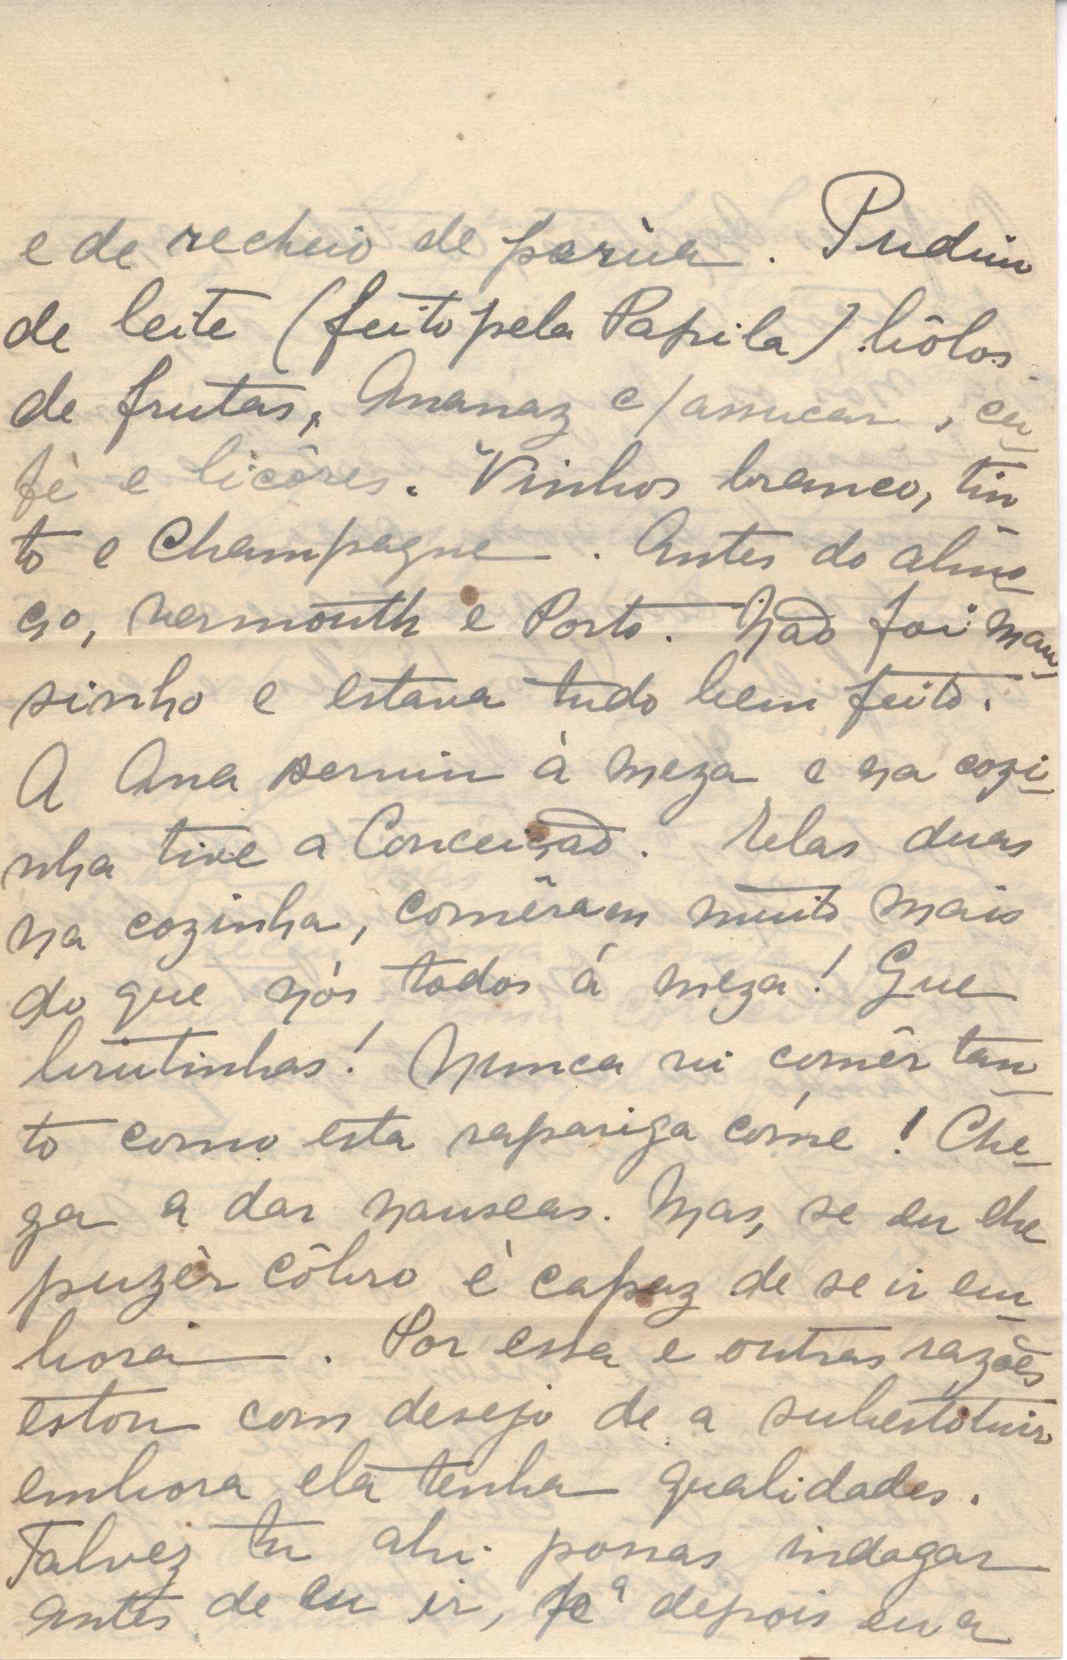 e de recheio de perúa. Pudim
de leite (feito pela Papila) bôlos
de frutas, Ananaz c/assucar, ca
fé e licôres. Vinhos branco, tin
to e Champagne. Antes do almo-
ço, vermouth e Porto. Não foi mau-
sinho e estava tudo bem feito.
A Ana serviu à meza e na cozi-
nha tive a Conceição. Elas duas
na cozinha, comêram muito mais
do que nós todos á meza! Que
brutinhas! Nunca vi comêr tan-
to como esta rapariga cóme! Che-
ga a dar nauseas. Mas, se eu lhe
puzér côbro é capaz de se ir em-
bora. Por essa e outras razões
estou com desejo de a substituir
embora ela tenha qualidades.
Talvez tu ahi possas indagar
antes de eu ir, pª depois eu a